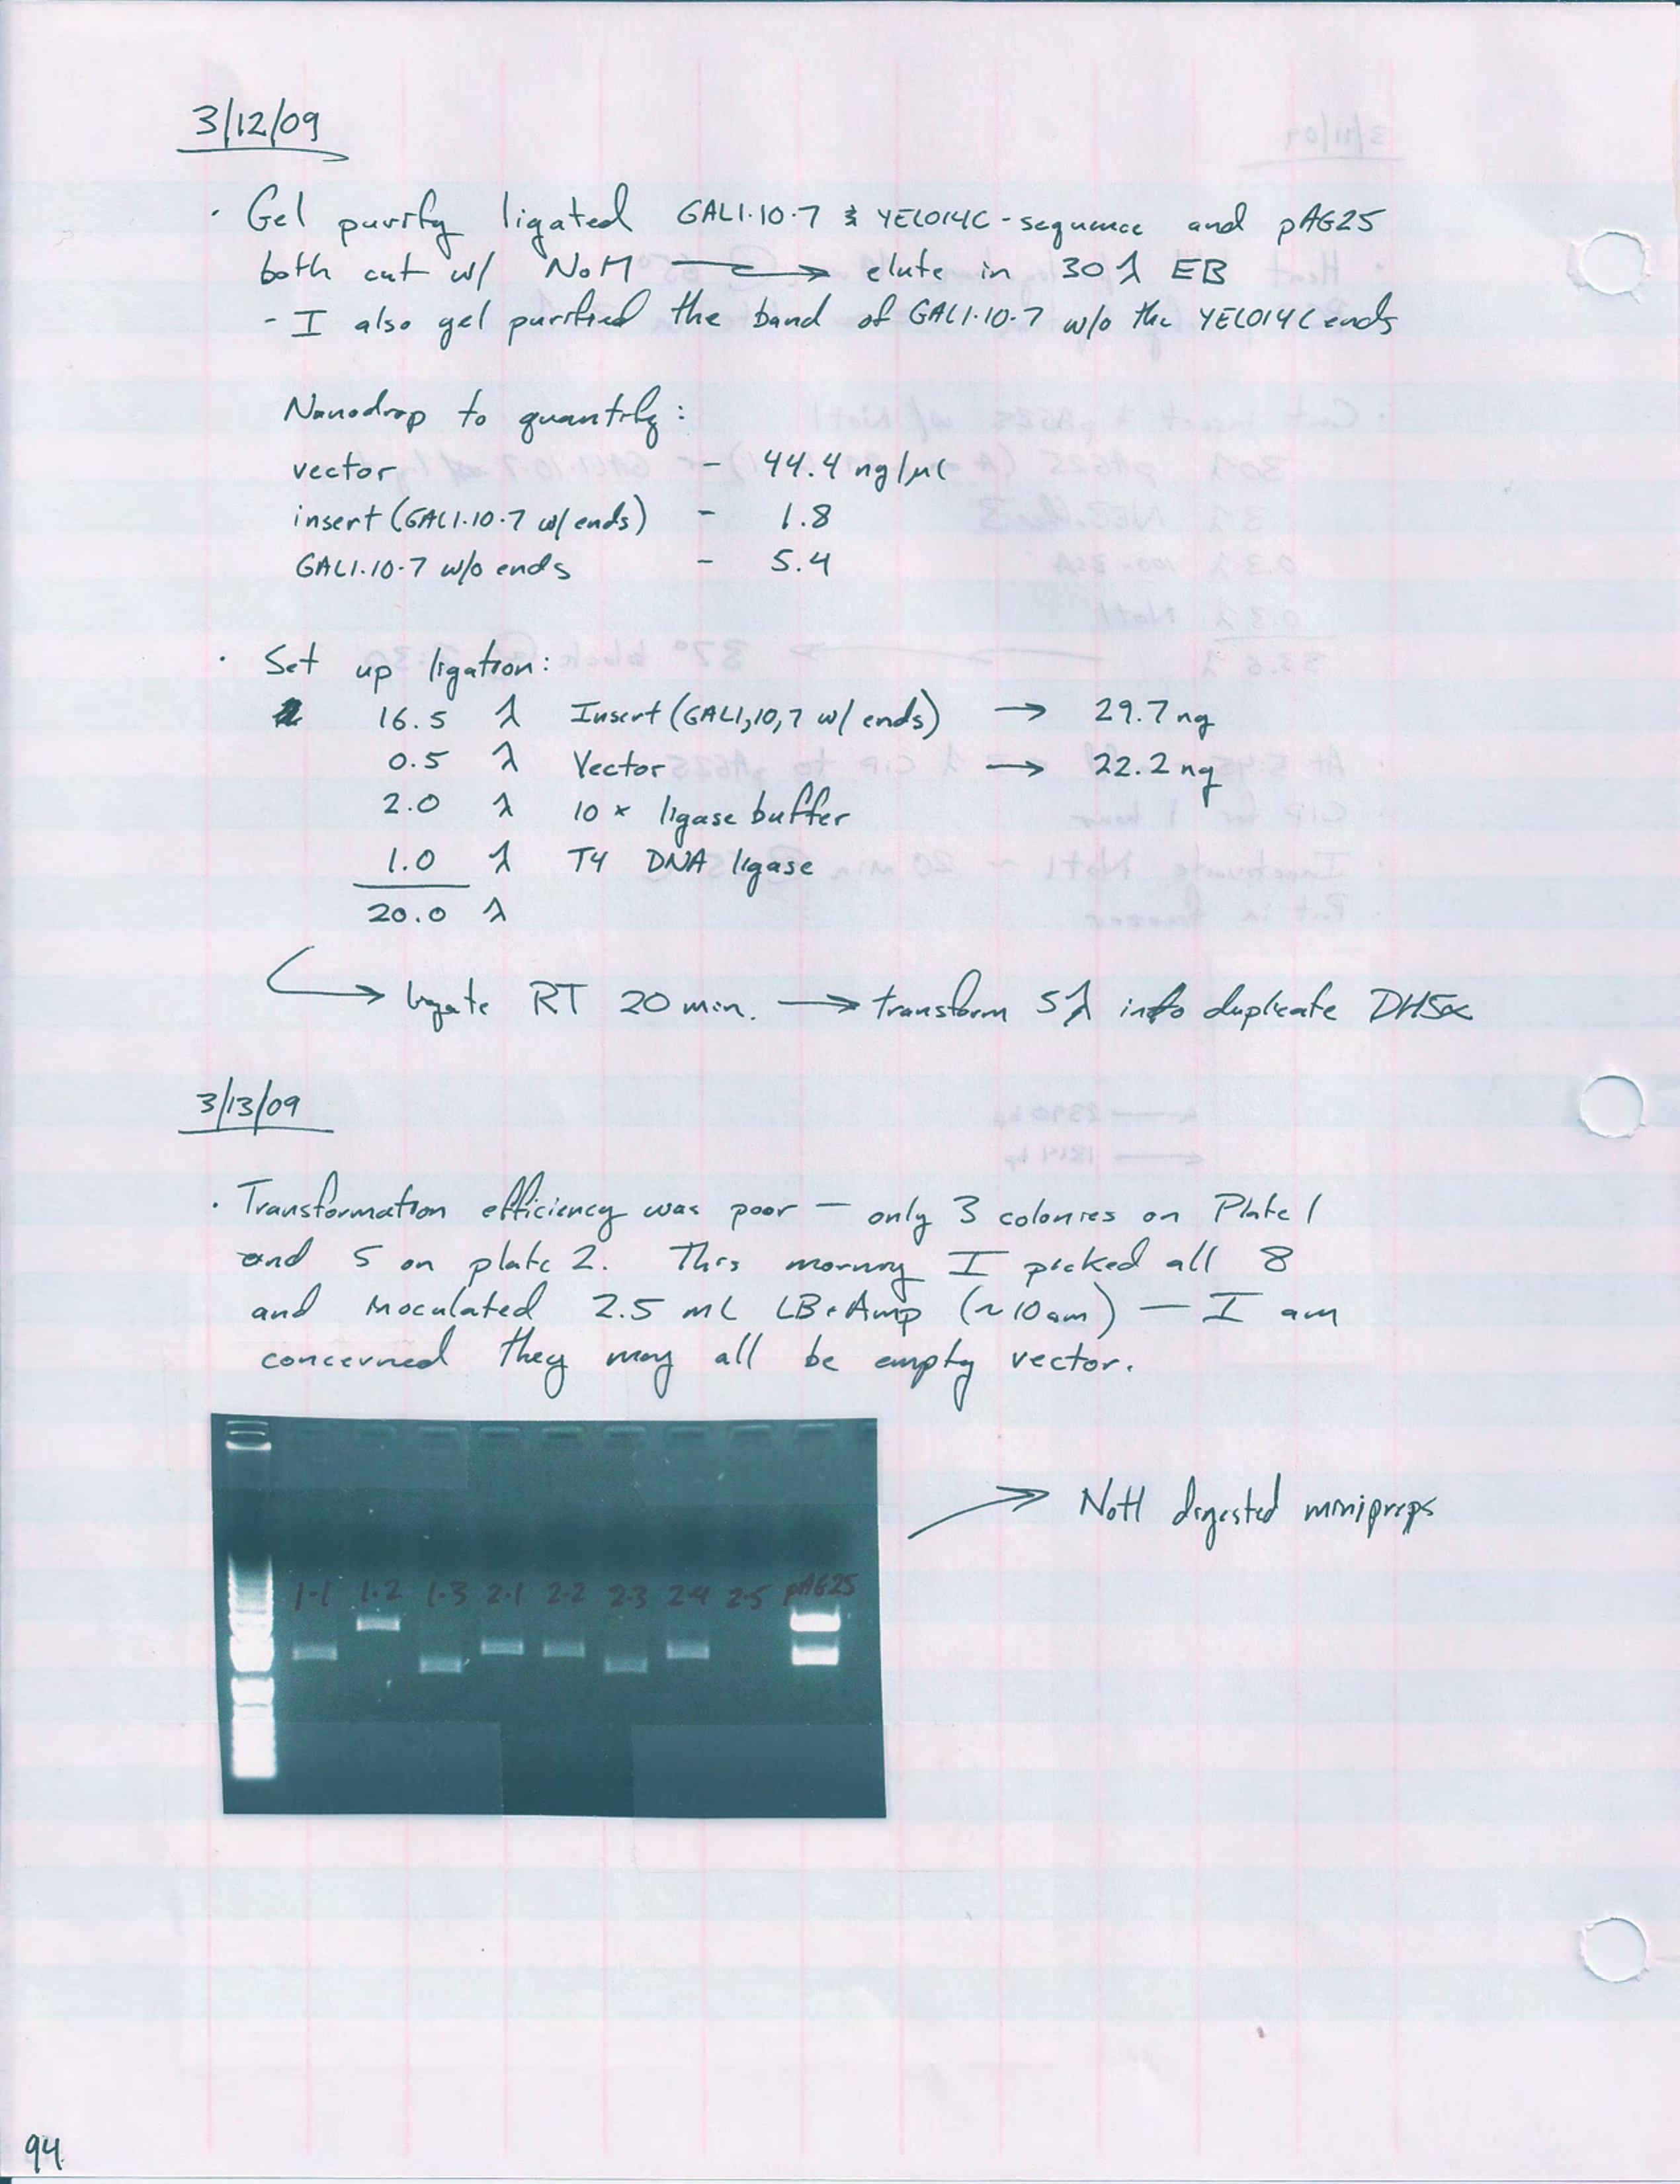 3/12/09
· Gel purify ligated GAL1·10·7 & YEL014C-sequence and pAG25
both cut w/ NotI → elute in 30 λ EB
- I also gel purified the band of GAL1·10·7 w/o the YEL014C ends
Nanodrop to quantify:
vector - 44.4 ng/µl
insert (GAL1·10·7 w/ ends) - 1.8
GAL1·10·7 w/o ends - 5.4
· Set up ligation:
16.5 λ Insert (GAL1,10,7 w/ ends) → 29.7 ng
0.5 λ Vector → 22.2 ng
2.0 λ 10x ligase buffer
1.0 λ T4 DNA ligase
20.0 λ
→ ligate RT 20 min. → transform 5λ into duplicate DH5α
3/13/09
· Transformation efficiency was poor — only 3 colonies on Plate 1
and 5 on plate 2. This morning I picked all 8
and inoculated 2.5 mL LB+Amp (~10am) — I am
concerned they may all be empty vector.
→ NotI digested minipreps
1-1 1-2 1-3 2-1 2-2 2-3 2-4 2-5 pAG25
94